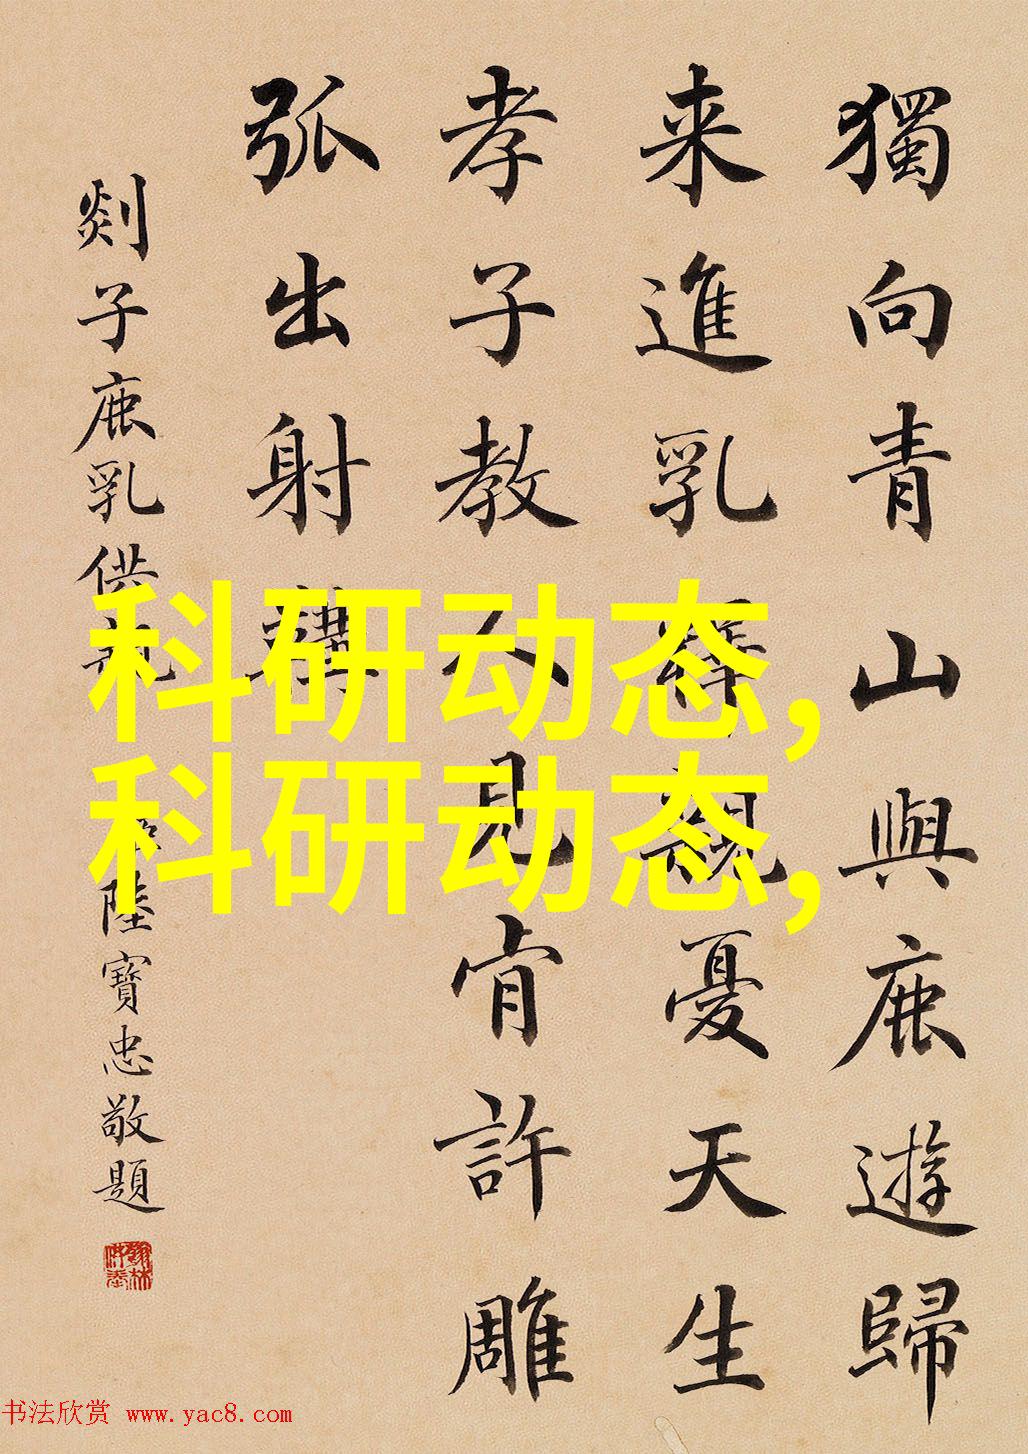 獨向青山與鹿遊歸
来進乳釋親憂天生
孝子教人見肯許雕
弧出射講
剡子鹿乳供親
陸寶忠敬題
科研动态,
科研动态,
书法欣赏 www.yac8.com